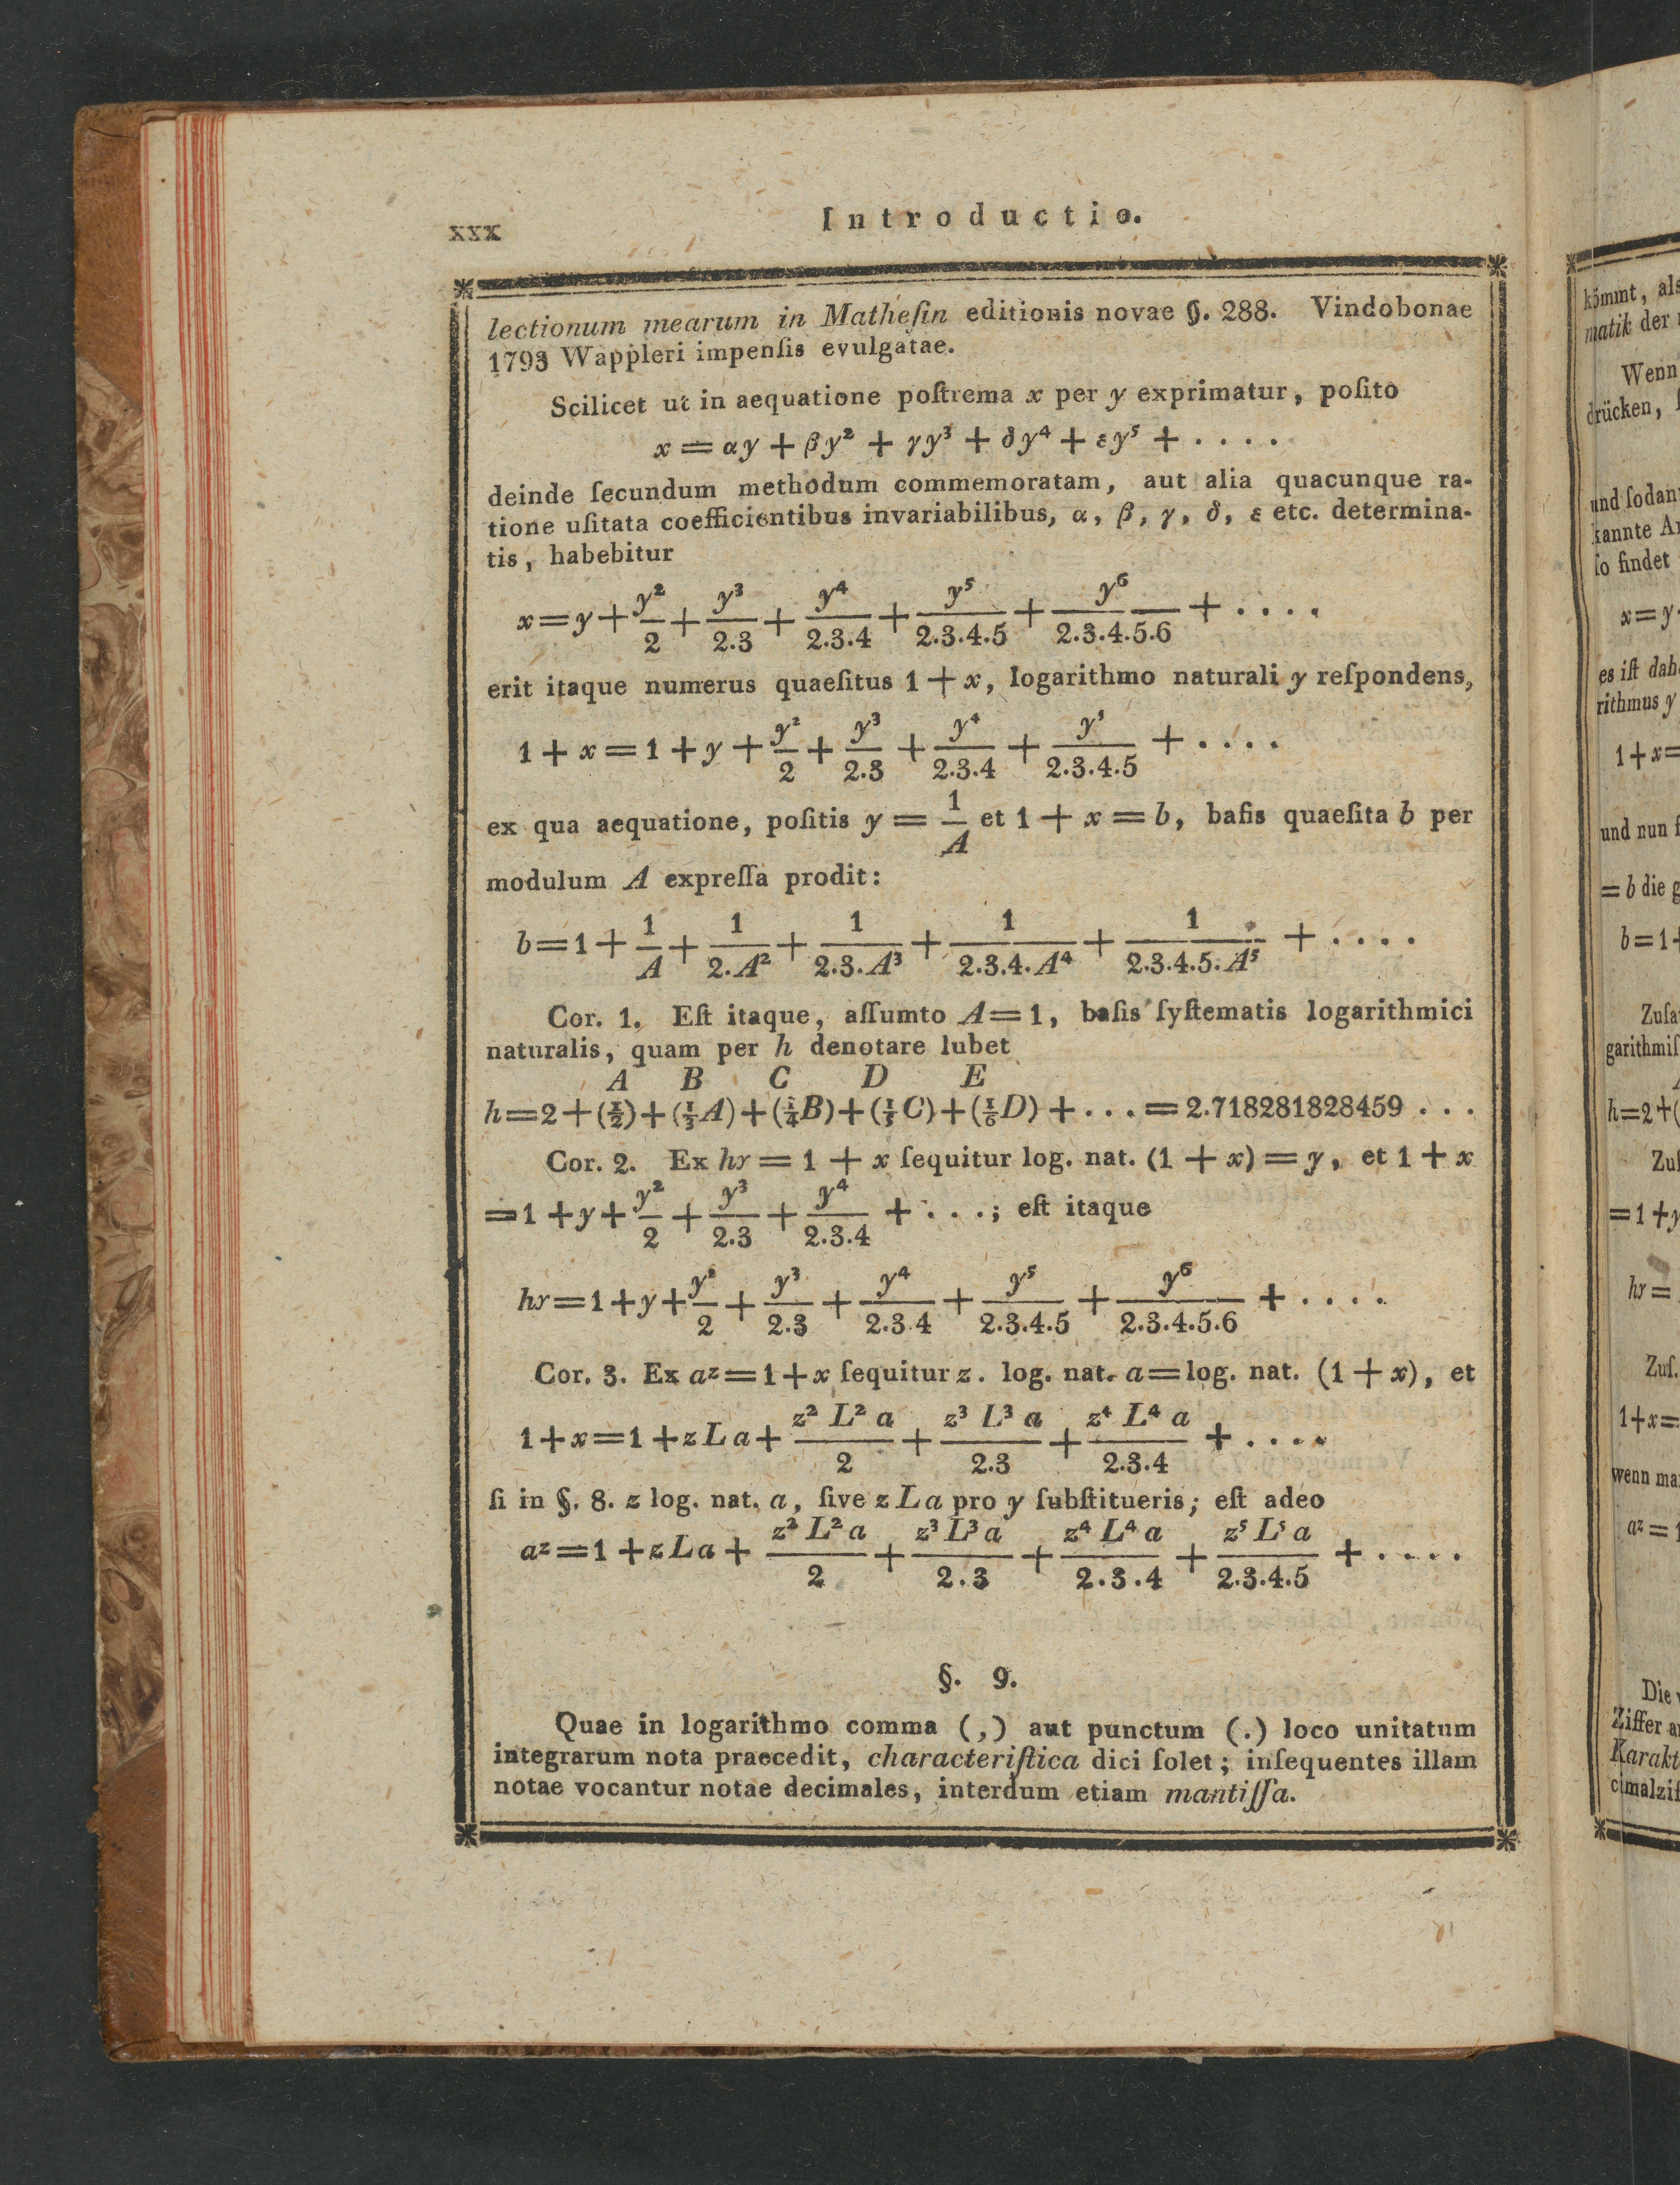 xxx
Introductio.
lectionum mearum in Matheſin editionis novae §. 288. Vindobonae
1793 Wappleri impenſis evulgatae.
Scilicet ut in aequatione poſtrema x per y exprimatur, poſito
x = αy + βy² + γy³ + δy⁴ + εy⁵ + . . . .
deinde ſecundum methodum commemoratam, aut alia quacunque ra-
tione uſitata coefficientibus invariabilibus, α, β, γ, δ, ε etc. determina-
tis, habebitur
x = y + y²/2 + y³/2.3 + y⁴/2.3.4 + y⁵/2.3.4.5 + y⁶/2.3.4.5.6 + . . . .
erit itaque numerus quaeſitus 1 + x, logarithmo naturali y reſpondens,
1 + x = 1 + y + y²/2 + y³/2.3 + y⁴/2.3.4 + y⁵/2.3.4.5 + . . . .
ex qua aequatione, poſitis y = 1/A et 1 + x = b, baſis quaeſita b per
modulum A expreſſa prodit:
b = 1 + 1/A + 1/2.A² + 1/2.3.A³ + 1/2.3.4.A⁴ + 1/2.3.4.5.A⁵ + . . . .
Cor. 1. Eſt itaque, aſſumto A = 1, baſis ſyſtematis logarithmici
naturalis, quam per h denotare lubet
A B C D E
h = 2 + (1/2) + (1/3 A) + (1/4 B) + (1/5 C) + (1/6 D) + . . . = 2.718281828459 . . .
Cor. 2. Ex hʸ = 1 + x ſequitur log. nat. (1 + x) = y, et 1 + x
= 1 + y + y²/2 + y³/2.3 + y⁴/2.3.4 + . . . ; eſt itaque
hʸ = 1 + y + y²/2 + y³/2.3 + y⁴/2.3.4 + y⁵/2.3.4.5 + y⁶/2.3.4.5.6 + . . . .
Cor. 3. Ex aᶻ = 1 + x ſequitur z. log. nat. a = log. nat. (1 + x), et
1 + x = 1 + z L a + z² L² a/2 + z³ L³ a/2.3 + z⁴ L⁴ a/2.3.4 + . . . .
ſi in §. 8. z log. nat. a, ſive z L a pro y ſubſtitueris; eſt adeo
aᶻ = 1 + z L a + z² L² a/2 + z³ L³ a/2.3 + z⁴ L⁴ a/2.3.4 + z⁵ L⁵ a/2.3.4.5 + . . . .
§. 9.
Quae in logarithmo comma (,) aut punctum (.) loco unitatum
integrarum nota praecedit, characteriſtica dici ſolet; inſequentes illam
notae vocantur notae decimales, interdum etiam mantiſſa.
kömmt, als
matik der
Wenn
drücken,
und ſodann
kannte
ſo findet
x = y
es iſt
rithmus y
1 + x =
und nun
= b die
b = 1 +
h = 2 + (
= 1 + y
hʸ =
Zuſ.
1 + x =
wenn
aᶻ =
Die
Ziffer